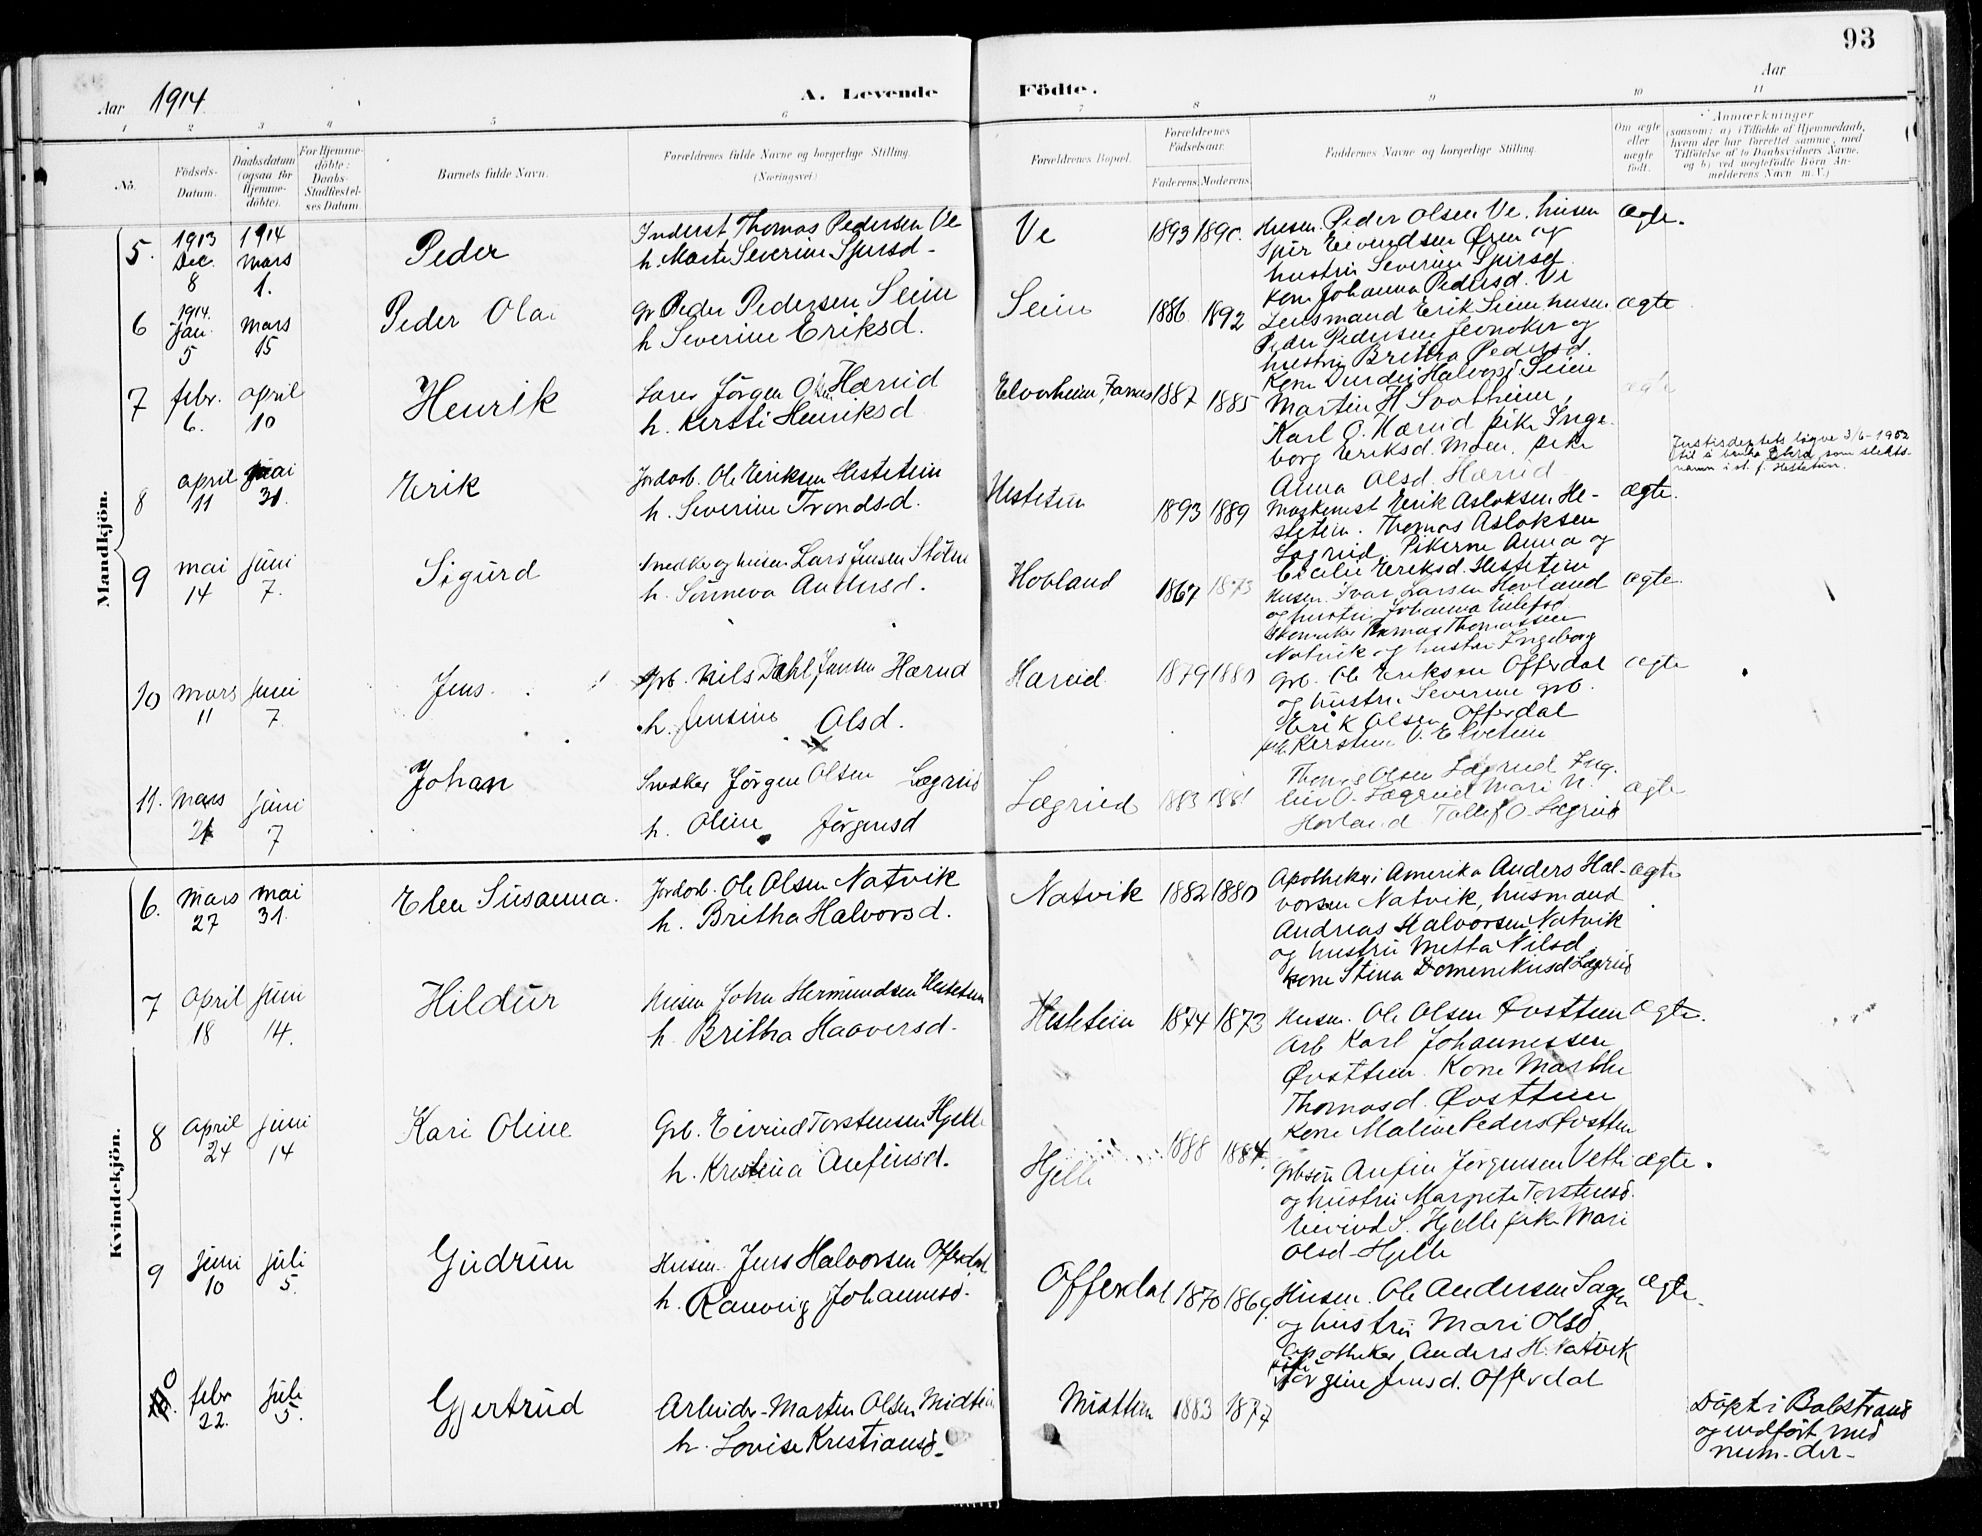 93
Aar 1914. A. Levende Födte. Aar
1 2 3 4 5 6 7 8 9 10 11
No. Födsels-Datum. Daabsdatum (ogsaa for Hjemme-döbte). For Hjemme-döbte: Daabs-Stadfæstel-ses Datum. Barnets fulde Navn. Forældrenes fulde Navne og borgerlige Stilling. (Næringsvei) Forældrenes Bopæl. Forældrenes Födselsaar. Faderens. Moderens. Faddernes Navne og borgerlige Stilling. Om ægte eller uægte födt. Anmærkninger (saasom: a) i Tilfælde af Hjemmedaab, hvem der har forrettet samme, med Tilföielse af to Daabsvidners Navne, og b) ved uægtefödte Börn An-melderens Navn m. V.)
Mandkjön.
5. 1913 Dec. 8 1914 mars 1. Peder
Inderst Thomas Pedersen Ve
h. Marte Severine Sjursd.
Ve 1893 1890. Husm. Peder Olsen Ve, husm
Sjur Eivendsen Øren og
hustru Severine Sjursd.
Kone Johanna Pedersd. Ve
ægte.
6 1914. Jan. 5 mars 15 Peder Olai
Gr Peder Pedersen Seim
h Severine Eriksd.
Seim 1886 1892 Lensmand Erik Seim, husm
Peder Pedersen Jevnaker og
hustru Britha Pedersd.
Kone Durdei Halvorsd Seim
ægte
7 febr. 6. april 10 Henrik
Larer Jørgen Olsen Hæreid
h. Kersti Henriksd
Elvorheim, Farnes 1887 1885 Martin H Svalheim,
Karl O. Hæreid pike Inge-
borg Eriksd. Moen. pike
Anna Olsd. Hæreid
ægte
8 april 11 mai 31. Erik
Jordarb. Ole Eriksen Hestetein
h. Severine Trondsd.
Hestetein 1893 1889 Maskinist Erik Aslaksen He-
stetein. Thomas Aslaksen
Lægreid. Pikerne Anna og
Cicilie Eriksd. Hestetein
ægte.
Justisdeptets løyve 3/6-1952
til å bruka som slekts-
namn i st. f. Hestetun.
9 mai 14 juni 7. Sigurd
Snedker og husm Lars Jensen Stölen
h. Sünneva Andersd.
Hovland 1867 1873 Husm. Ivar Larsen Hovland
og hustru Johanna
Skomaker Rasmus Thomassen
Natvik og hustru Ingeborg
ægte.
10 mars 11 juni 7. Jens.
Grb. Nils Dahl Jensen Hæreid
h. Jensine Olsd.
Hæreid 1879 1880 Grb. Ole Eriksen Offerdal
og hustru Severine grb.
Erik Olsen Offerdal
pike Kerstine O. Elvetun
ægte
11. mars 21 juni 7 Johan
Snedker Jørgen Olsen Lægreid
h. Oline Jörgensd
Lægreid 1883 1881 Thomas Olsen Lægreid Ing.
O. Lægreid Mari N.
Hovland Tollef O. Lægreid
ægte
Kvindekjön.
6. mars 27 mai 31. Elen Susanna.
Jordarb. Ole Olsen Natvik
h. Britha Halvorsd.
Natvik 1882 1880 Apotheker i Amerika Anders Hal-
vorsen Natvik, husmand
Andreas Halvorsen Natvik
og hustru Metta Nilsd.
kone Stina Domenikusd Lægreid
ægte
7 april 18 juni 14. Hildur
Husm John Hermundsen Hestetun
h. Britha Haaversd.
Hestetein 1874 1873 Husm. Ole Olsen Øvsttun
Arb Karl Johannessen
Øvsttun. Kone Marthe
Thomasd. Øvsttun
Kone Maline Peders Øvsttun
ægte.
8 april 24 juni 14 Kari Oline
Grb. Eivind Torstensen Hjelle
h. Kristina Anfinsd.
Hjelle 1888 1884. Grbsøn Anfin Jørgensen Vetti
og hustru Margrete Torstensd.
Eivind S. Hjelle pike Mari
Olsd Hjelle
ægte.
9 juni 10 juli 5. Gudrun
Husm. Jens Halvorsen Offerdal
h. Ranveig Johannesd.
Offerdal 1870 1869. Husm. Ole Andersen Sagen
og hustru Mari Olsd
Apotheker Anders H. Natvik
pike Jørgine Jensd. Offerdal
ægte.
10. febr 22. juli 5. Gjertrud
Arbeider Martin Olsen Midttun
h. Lovise Kristiansd.
Midttun 1883 1877
Döpt i Balestrand
og indfört med
num. der.